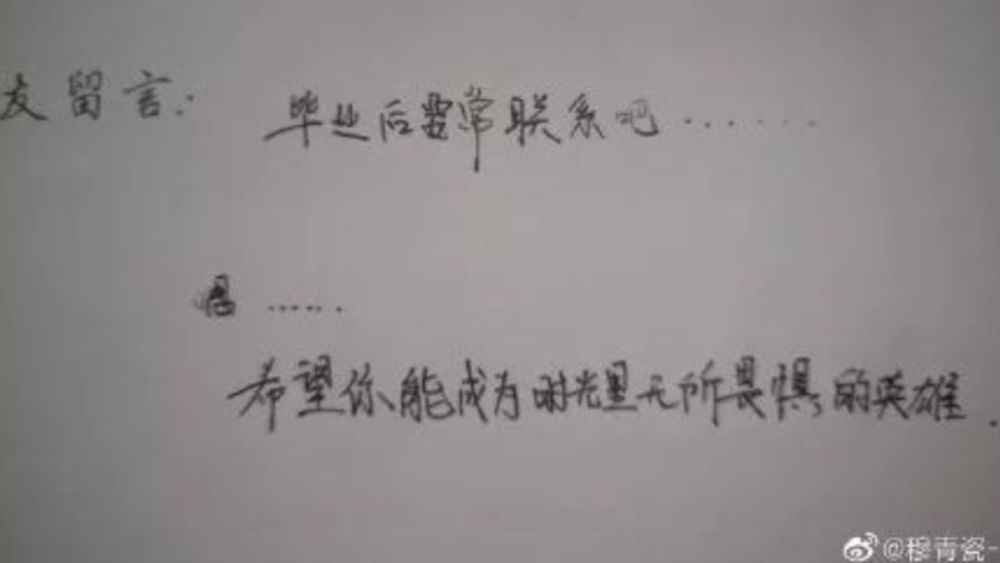 友留言:
毕业后要常联系吧......
嗯......
希望你能成为时光里无所畏惧的英雄.
@穆青瓷-